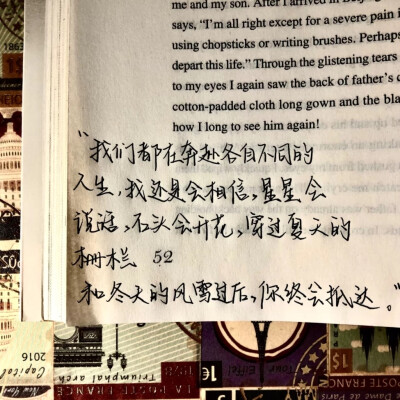 me and my son. After I arrived in Beijing
says, "I'm all right except for a severe pain i
using chopsticks or writing brushes. Perhaps
depart this life." Through the glistening tears
to my eyes I again saw the back of father's c
cotton-padded cloth long gown and the bla
how I long to see him again!
"我们都在奔赴各自不同的
人生,我还是会相信,星星会
说话,石头会开花,穿过夏天的
栅栏 52
和冬天的风雪过后,你终会抵达。"
1863
2016
Capitol
New York
Triumphal arch
1828
LA POSTE FRANCE
Tour Eiffel
POSTE FRANCE
1$